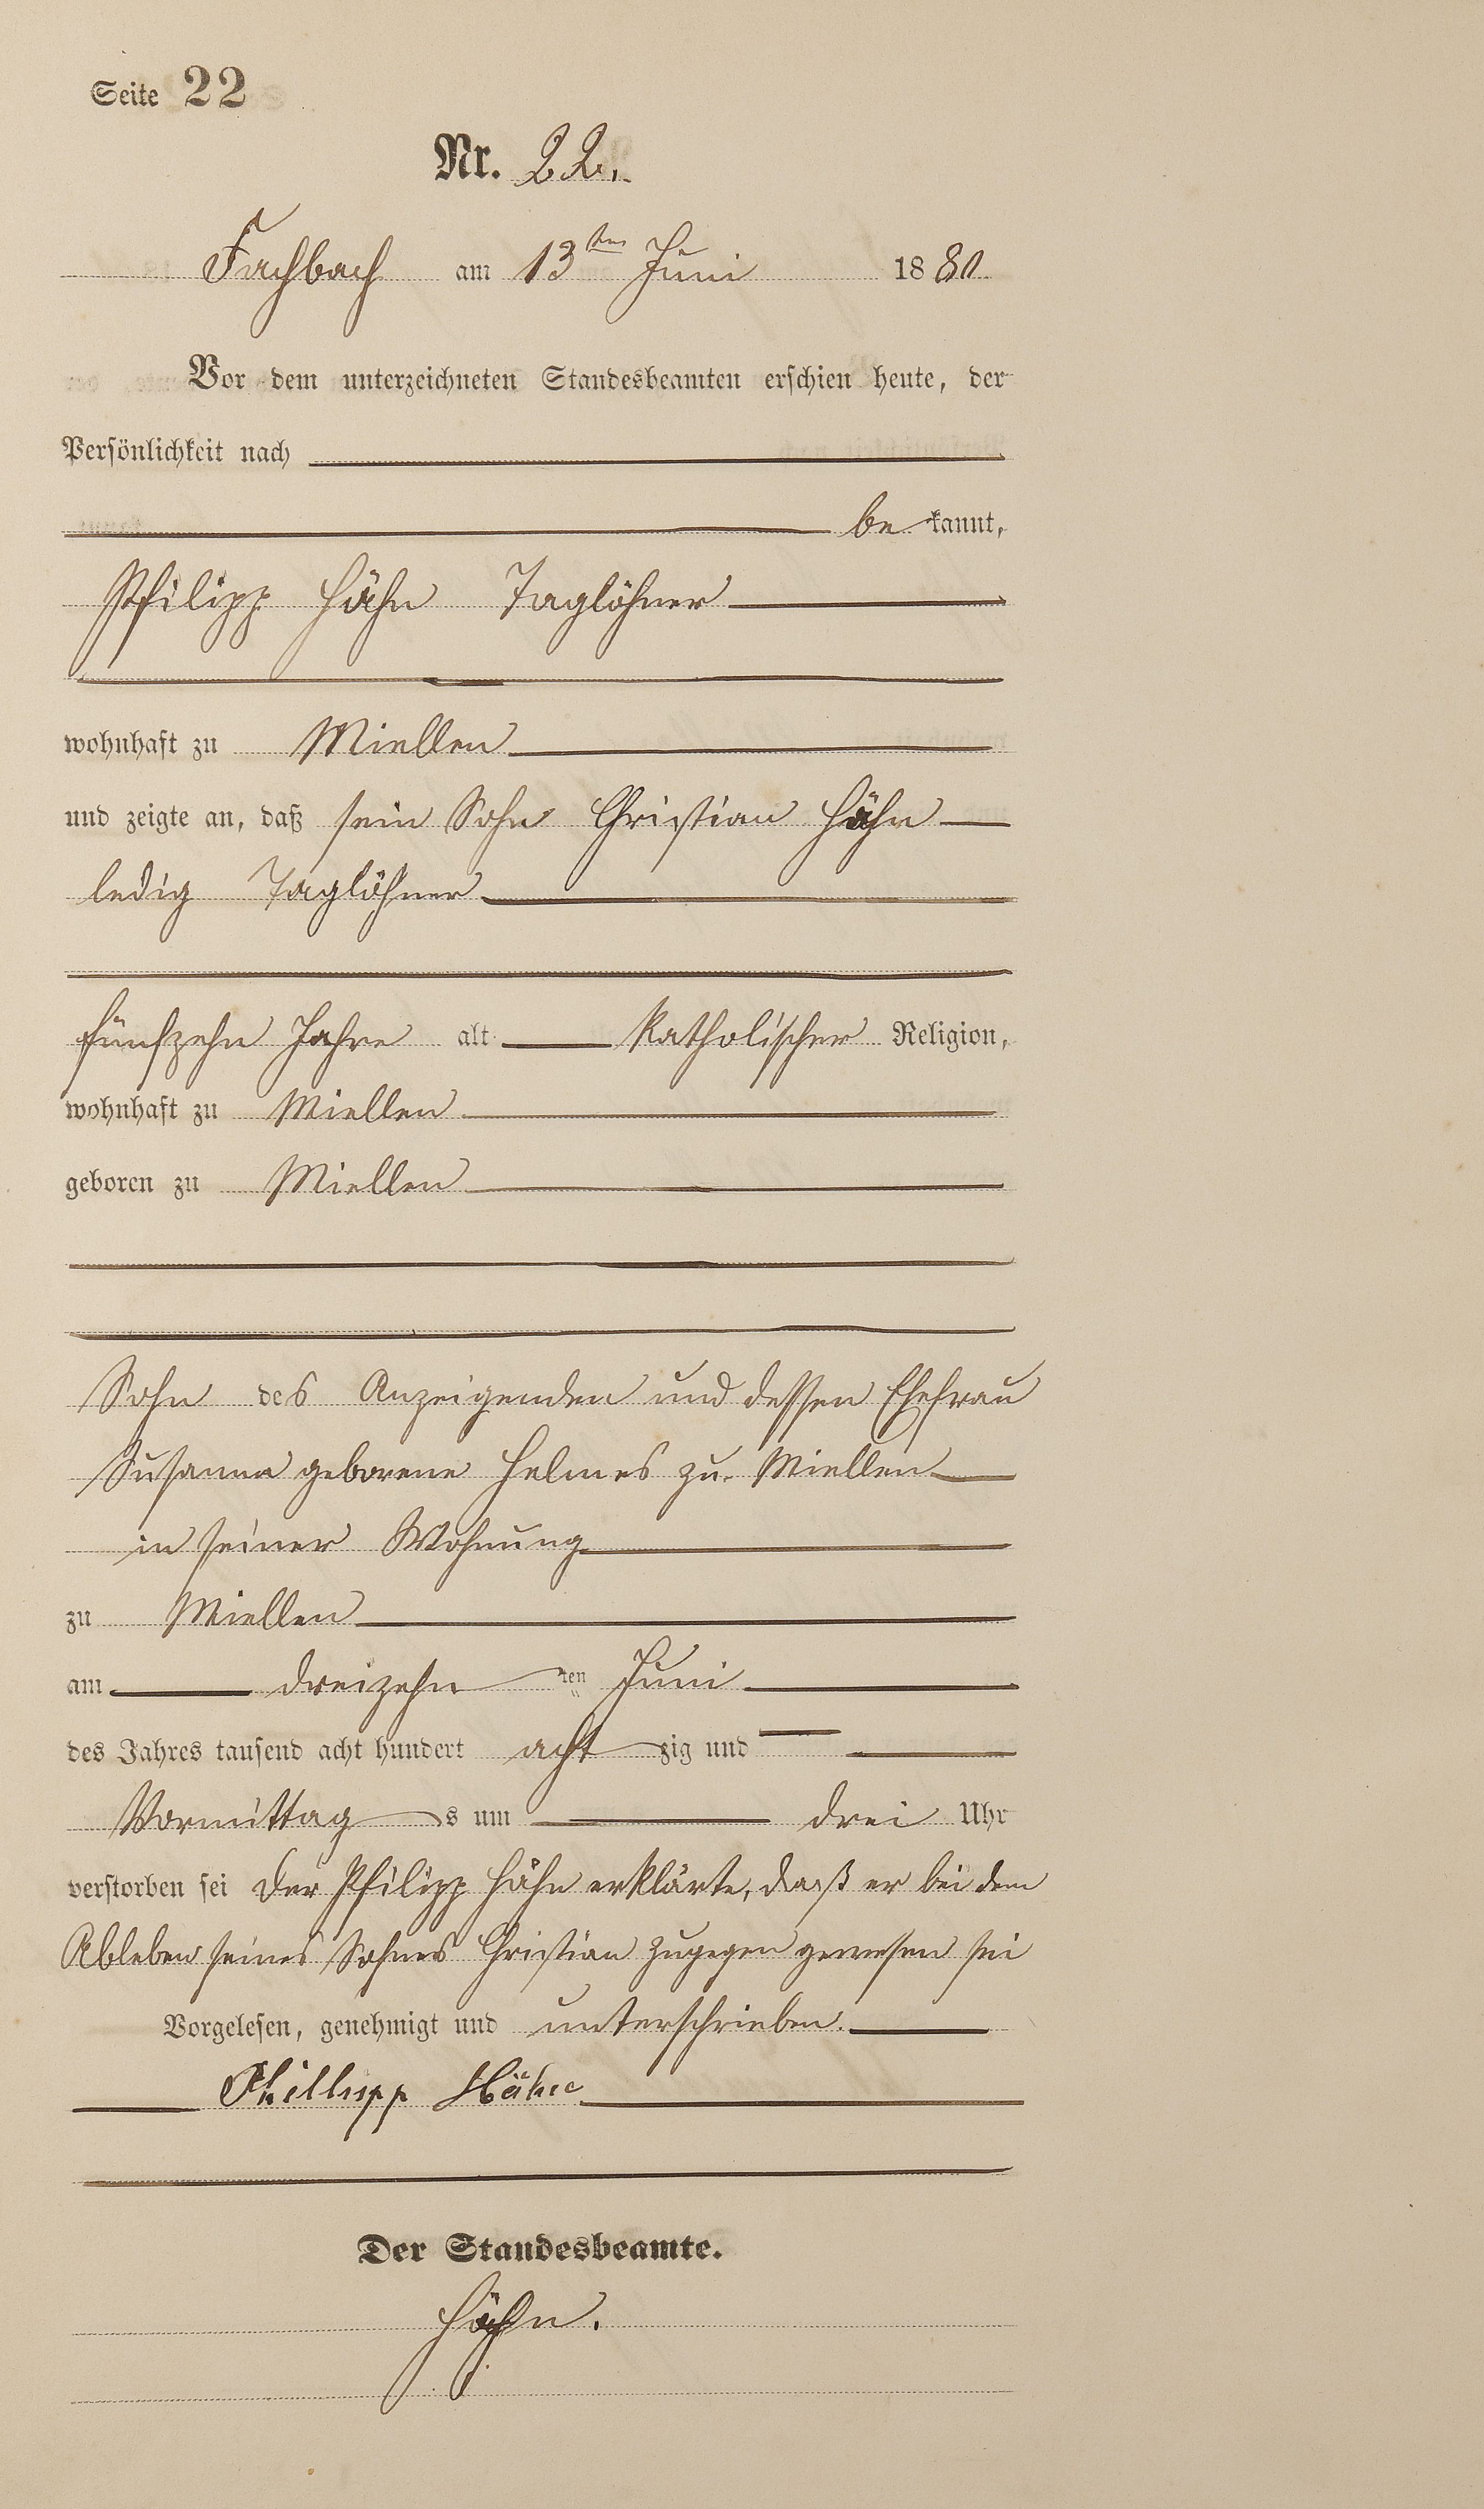 Seite 22
Nr. 22.
Fachbach am 13ten Juni 1880
Vor dem unterzeichneten Standesbeamten erschien heute, der
Persönlichkeit nach
be kannt,
Philipp Hähn Taglöhner
wohnhaft zu Miellen
und zeigte an, daß sein Sohn Christian Hähn
ledig Taglöhner
fünfzehn Jahre alt katholischer Religion,
wohnhaft zu Miellen
geboren zu Miellen
Sohn des Anzeigenden und dessen Ehefrau
Susanna geborene Helmes zu Miellen
in seiner Wohnung
zu Miellen
am dreizehn ten Juni
des Jahres tausend acht hundert acht zig und
Vormittag s um drei Uhr
verstorben sei Der Philipp Hähn erklärte, daß er bei dem
Ableben seines Sohnes Christian zugegen gewesen sei
Vorgelesen, genehmigt und unterschrieben.
Phillipp Hähn
Der Standesbeamte.
Hähn.